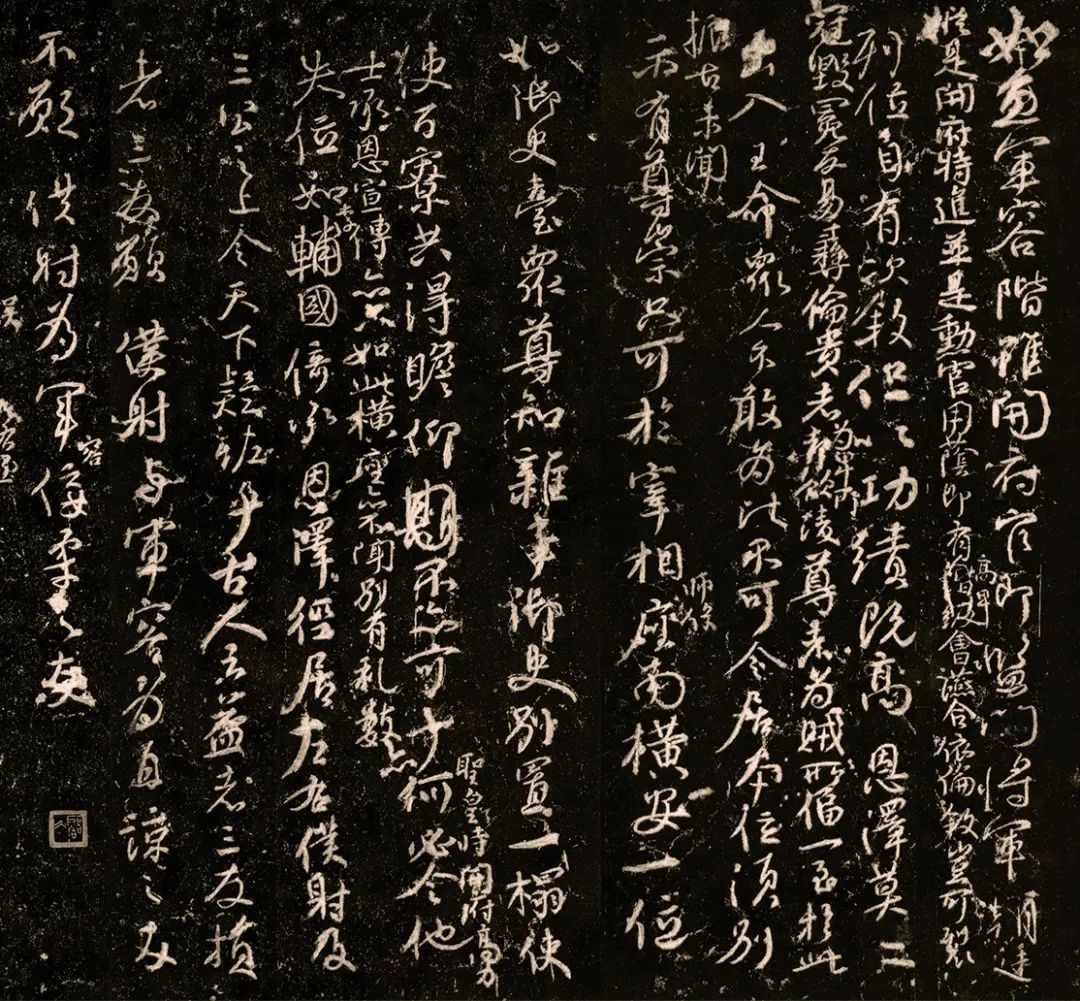 如魚軍容階雖開府官即監門將軍
縱是開府特進並是勳官用蔭即有高卑會讌合依倫敘豈可裂
列位自有次敘但以功績既高恩澤莫二
冠毀冕反易彝倫貴者為卑所凌尊者為賊所偪一至於此
出入王命眾人不敢為比不可令居本位須別
振古未聞
示有尊崇只可於宰相師保座南橫安一位
如御史臺眾尊知雜事御史別置一榻使
百寮共得瞻仰不亦可乎何必令他
聖皇時開府高力
士承恩宣傳亦只如此橫座亦不聞別有礼數亦
失位如李輔國倚承恩澤徑居左右僕射及
三公之上令天下疑恠乎古人云益者三友損
者三友願僕射與軍容為直諒之友
不願僕射為軍容佞柔之友